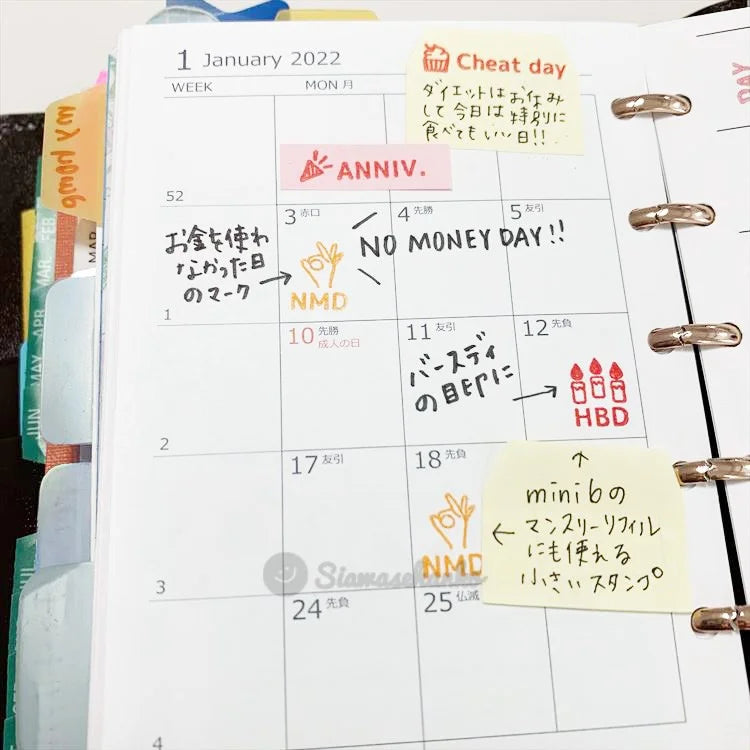 1 January 2022
WEEK MON 月
Cheat day
ダイエットはお休み
して今日は特別に
食べてもいい日!!
ANNIV.
52
3 赤口
4 先勝
5 友引
お金を使わ
なかった日
のマーク
NO MONEY DAY!!
NMD
1
10 先勝
成人の日
11 友引
12 先負
バースディ
の目印に
HBD
2
17 友引
18 先負
mini6の
マンスリーリフィル
にも使える
小さいスタンプ
NMD
3
24 先負
25 仏滅
4
DAY
FEB.
MAR.
APR
MAY
JUN
MAR